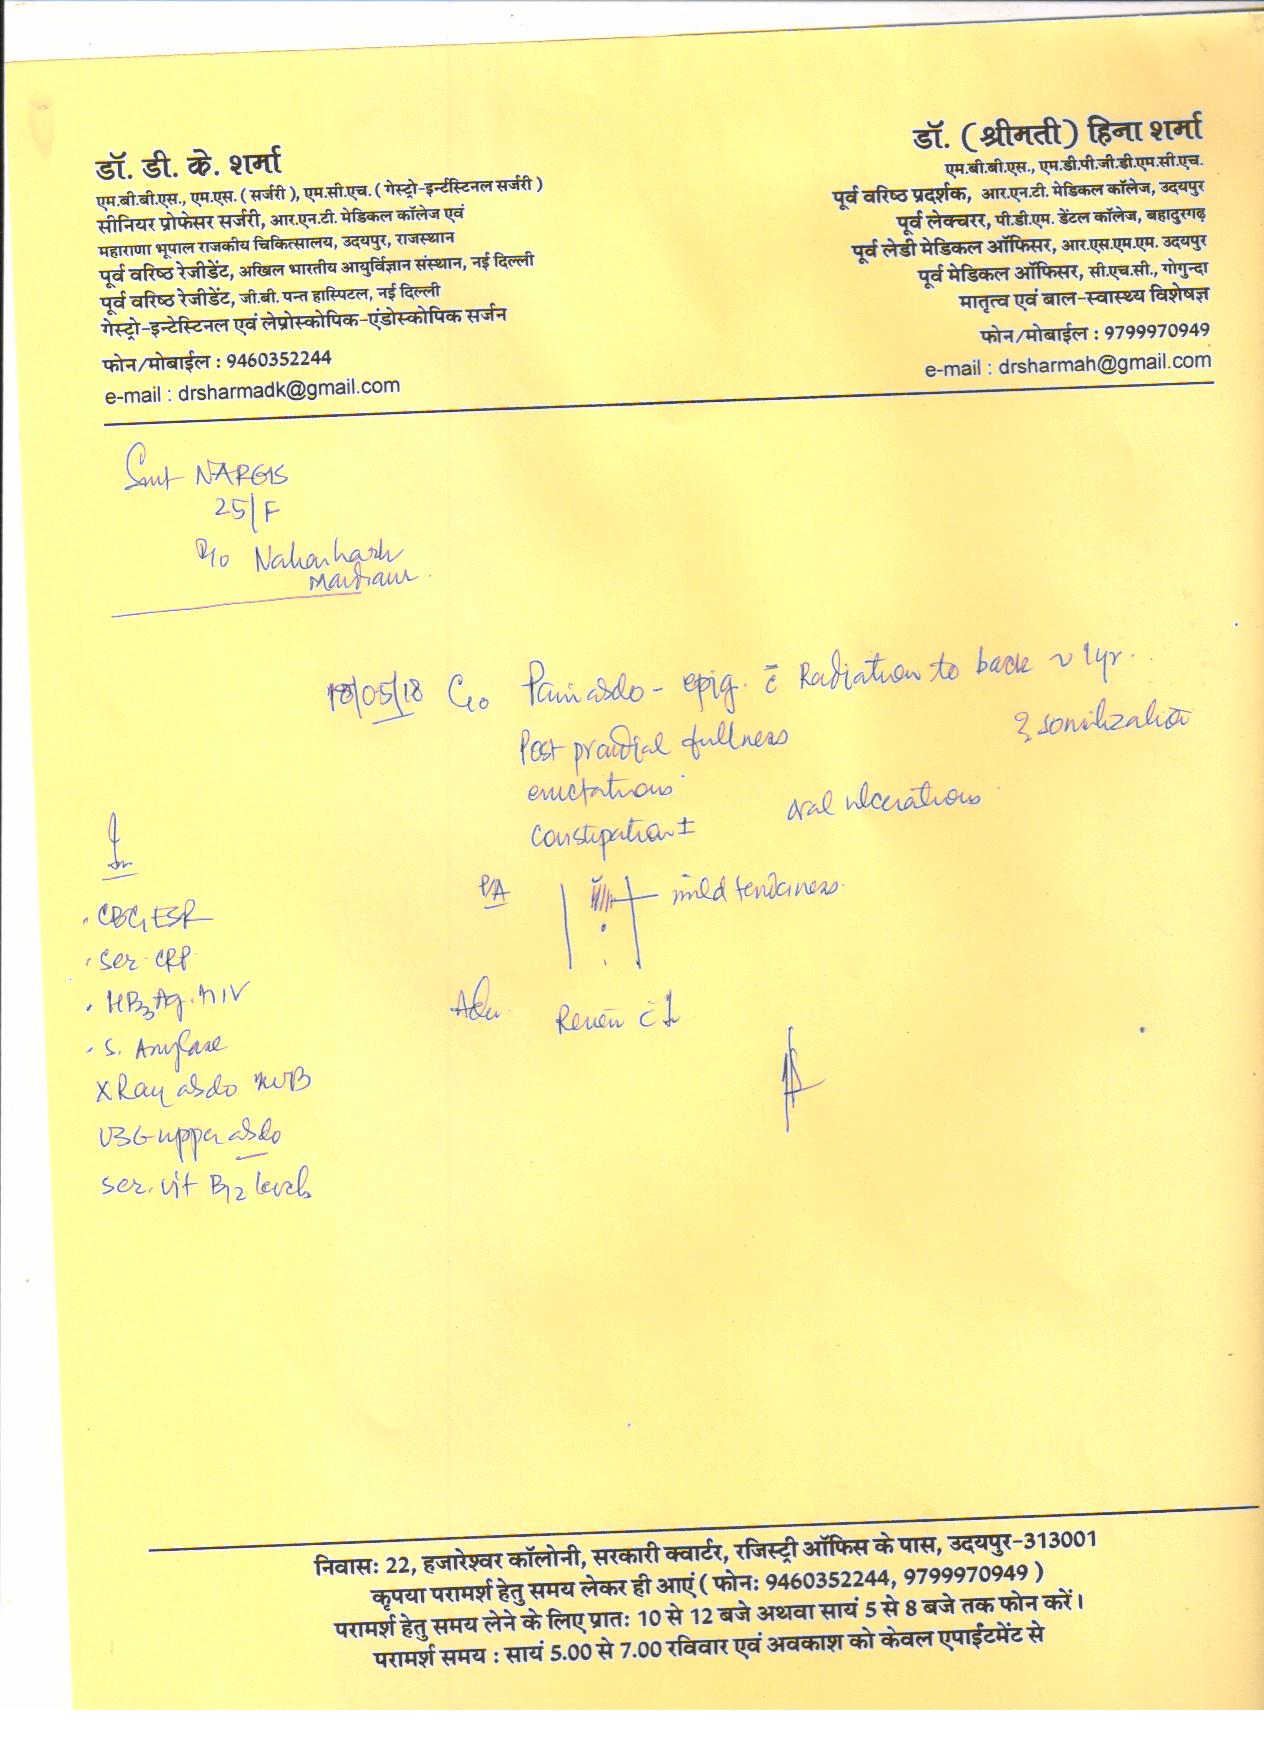 डॉ. डी. के. शर्मा
एम.बी.बी.एस., एम.एस. ( सर्जरी ), एम.सी.एच. ( गेस्ट्रो-इन्टेंस्टिनल सर्जरी )
सीनियर प्रोफेसर सर्जरी, आर.एन.टी. मेडिकल कॉलेज एवं
महाराणा भूपाल राजकीय चिकित्सालय, उदयपुर, राजस्थान
पूर्व वरिष्ठ रेजीडेंट, अखिल भारतीय आयुर्विज्ञान संस्थान, नई दिल्ली
पूर्व वरिष्ठ रेजीडेंट, जी.बी. पन्त हास्पिटल, नई दिल्ली
गेस्ट्रो-इन्टेस्टिनल एवं लेप्रोस्कोपिक-एंडोस्कोपिक सर्जन
फोन/मोबाईल : 9460352244
e-mail : drsharmadk@gmail.com
डॉ. ( श्रीमती ) हिना शर्मा
एम.बी.बी.एस., एम.डी.पी.जी.डी.एम.सी.एच.
पूर्व वरिष्ठ प्रदर्शक, आर.एन.टी. मेडिकल कॉलेज, उदयपुर
पूर्व लेक्चरर, पी.डी.एम. डेंटल कॉलेज, बहादुरगढ़
पूर्व लेडी मेडिकल ऑफिसर, आर.एस.एम.एम. उदयपुर
पूर्व मेडिकल ऑफिसर, सी.एच.सी., गोगुन्दा
मातृत्व एवं बाल-स्वास्थ्य विशेषज्ञ
फोन/मोबाईल : 9799970949
e-mail : drsharmah@gmail.com
Smt NARGIS
25/F
R/o
18/05/18 C/o Pain abdo - epig. c̄ Radiation to back ~ 1yr.
Post prandial fullness
eructations
oral ulcerations
Constipation ±
P/A mild tenderness.
Adv. Review c̄ I
In
. CBC, ESR
. Ser. CRP
. HBsAg. HIV
. S. Amylase
X Ray abdo KUB
USG upper abdo
ser. vit B12 levels
निवास: 22, हजारेश्वर कॉलोनी, सरकारी क्वार्टर, रजिस्ट्री ऑफिस के पास, उदयपुर-313001
कृपया परामर्श हेतु समय लेकर ही आएं ( फोन: 9460352244, 9799970949 )
परामर्श हेतु समय लेने के लिए प्रात: 10 से 12 बजे अथवा सायं 5 से 8 बजे तक फोन करें।
परामर्श समय : सायं 5.00 से 7.00 रविवार एवं अवकाश को केवल एपाईटमेंट से